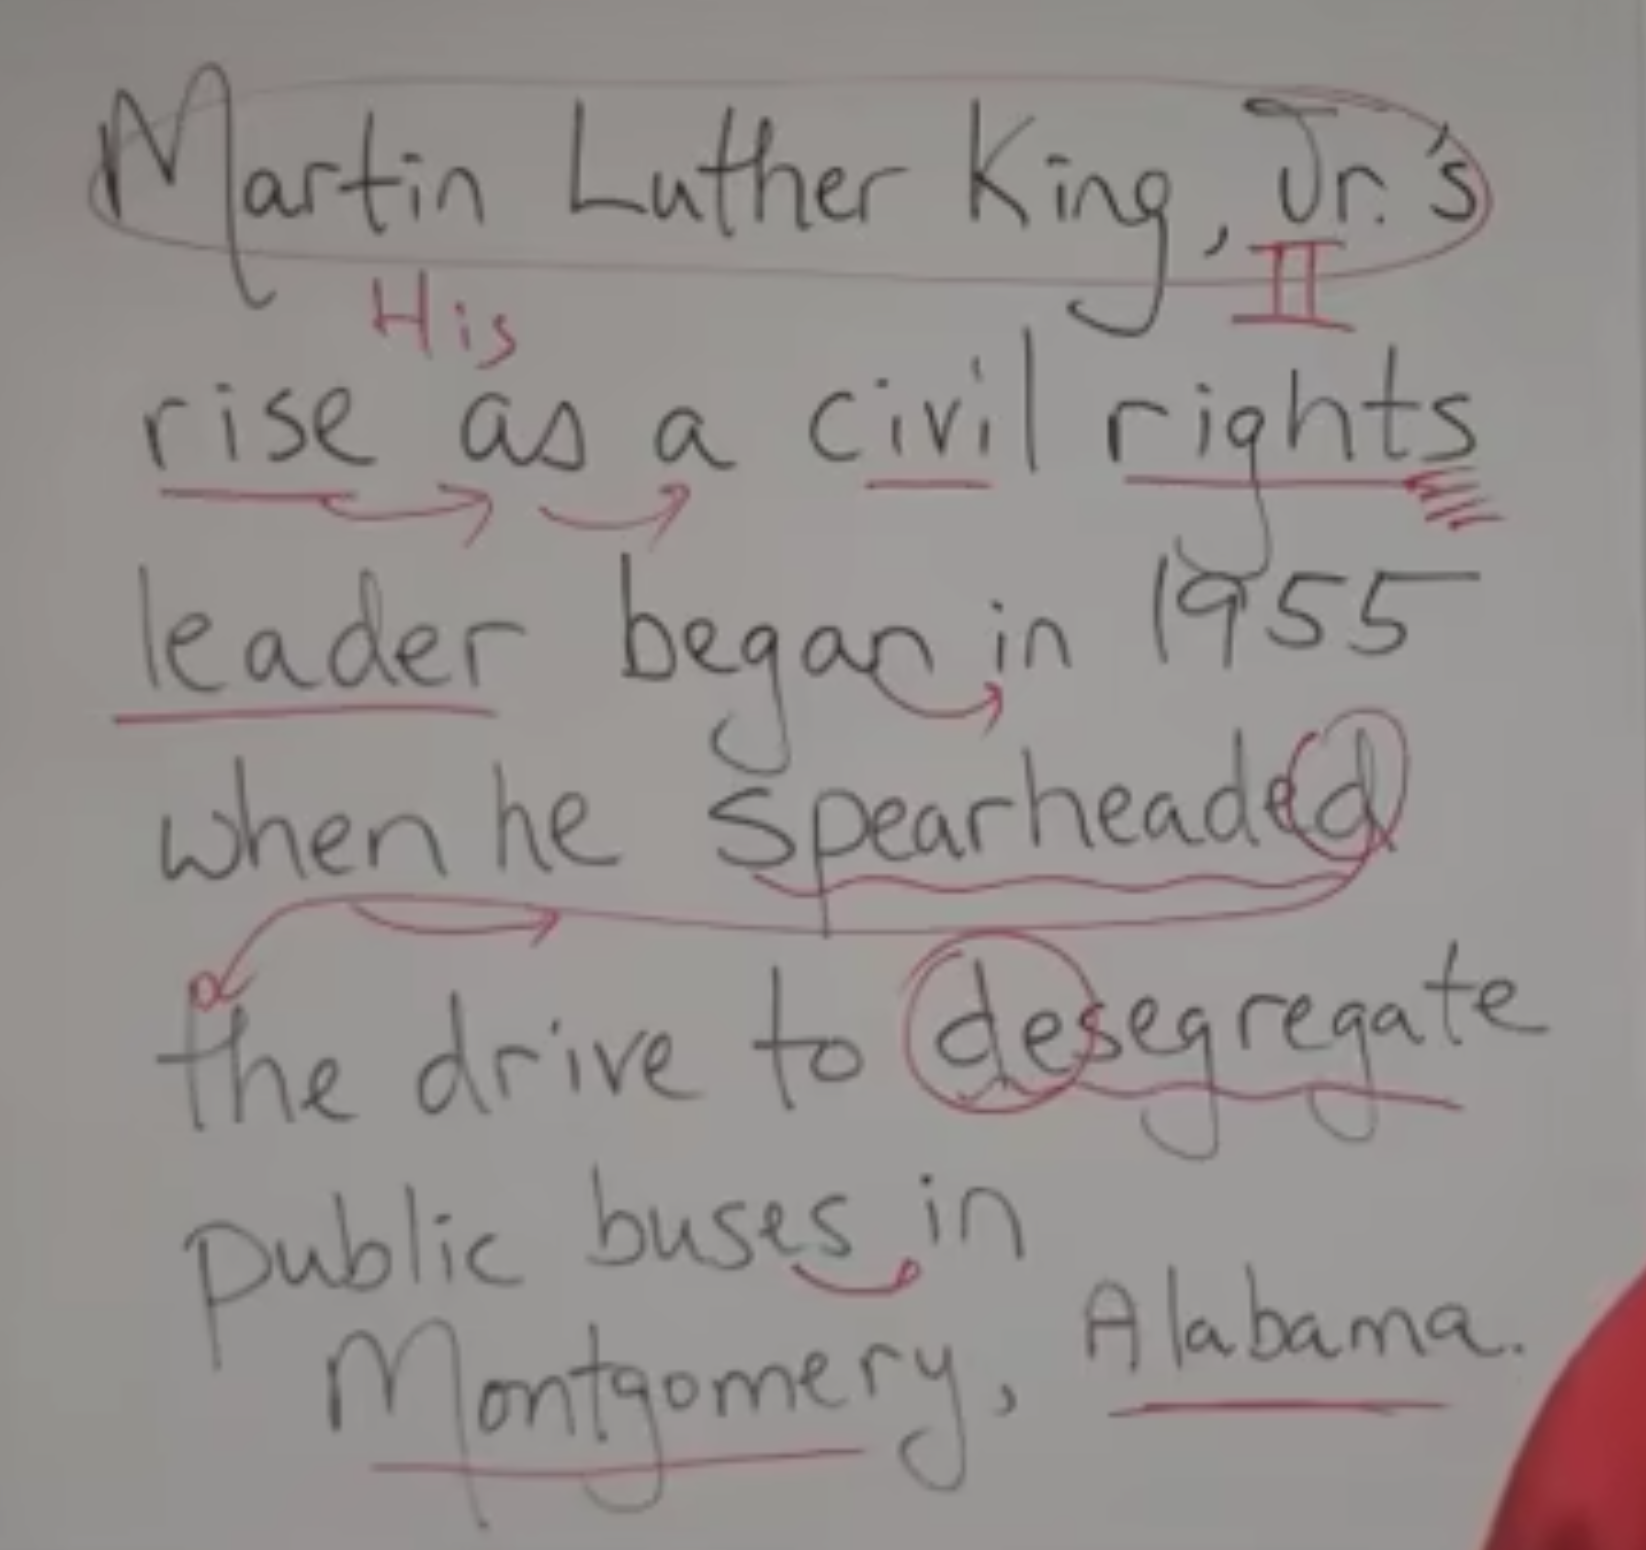 Martin Luther King, Jr.'s
His II
rise as a civil rights
leader began in 1955
when he spearheaded
the drive to desegregate
public buses in
Montgomery, Alabama.